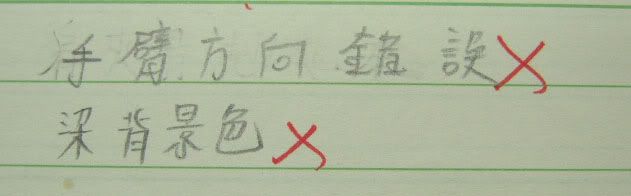 手臂方向錯誤
梁背景色